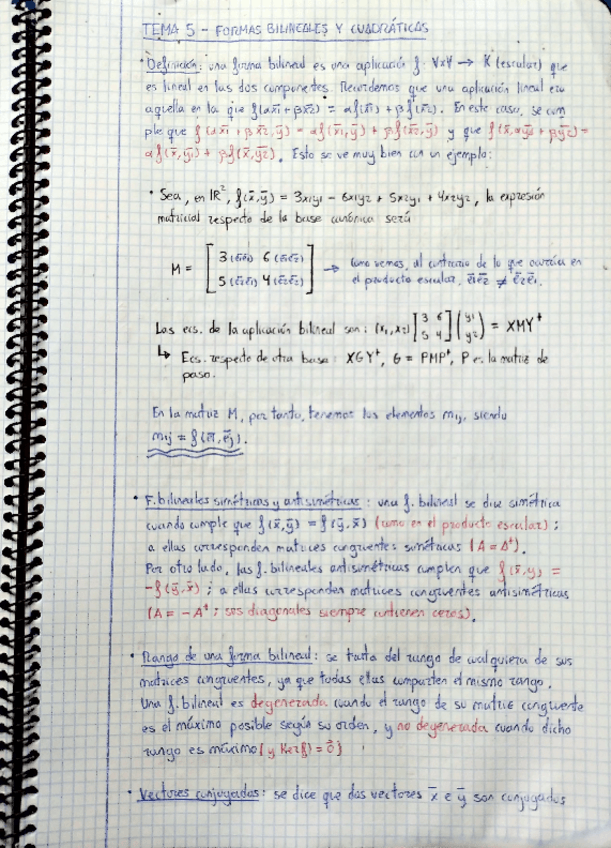 TEMA 5 - FORMAS BILINEALES Y CUADRÁTICAS
• Definición: una forma bilineal es una aplicación f: VxV → K (escalar) que
es lineal en las dos componentes. Recordemos que una aplicación lineal era
aquella en la que f(αx̄1 + βx̄2) = αf(x̄1) + βf(x̄2). En este caso, se cum
ple que f(αx̄1 + βx̄2, ȳ) = αf(x̄1, ȳ) + βf(x̄2, ȳ) y que f(x̄, αȳ1 + βȳ2) =
αf(x̄, ȳ1) + βf(x̄, ȳ2). Esto se ve muy bien con un ejemplo:
• Sea, en IR², f(x̄, ȳ) = 3x1y1 - 6x1y2 + 5x2y1 + 4x2y2, la expresión
matricial respecto de la base canónica será
M = [3 (ē1ē1) 6 (ē1ē2)
5 (ē2ē1) 4 (ē2ē2)] → como vemos, al contrario de lo que ocurría en
el producto escalar, ē1ē2 ≠ ē2ē1.
Las ecs. de la aplicación bilineal son: (x1, x2) [3 6 5 4] (y1 y2) = XMYᵗ
↳ Ecs. respecto de otra base: XGYᵗ, G = PMPᵗ, P es la matriz de
paso.
En la matriz M, por tanto, tenemos los elementos mij, siendo
mij = f(ēi, ēj).
• F. bilineales simétricas y antisimétricas: una f. bilineal se dice simétrica
cuando cumple que f(x̄, ȳ) = f(ȳ, x̄) (como en el producto escalar);
a ellas corresponden matrices congruentes simétricas (A = Aᵗ).
Por otro lado, las f. bilineales antisimétricas cumplen que f(x̄, y) =
-f(ȳ, x̄); a ellas corresponden matrices congruentes antisimétricas
(A = -Aᵗ; sus diagonales siempre contienen ceros).
• Rango de una forma bilineal: se trata del rango de cualquiera de sus
matrices congruentes, ya que todas ellas comparten el mismo rango.
Una f. bilineal es degenerada cuando el rango de su matriz congruente
es el máximo posible según su orden, y no degenerada cuando dicho
rango es máximo (y Ker(f) = 0̄)
• Vectores conjugados: se dice que dos vectores x̄ e ȳ son conjugados